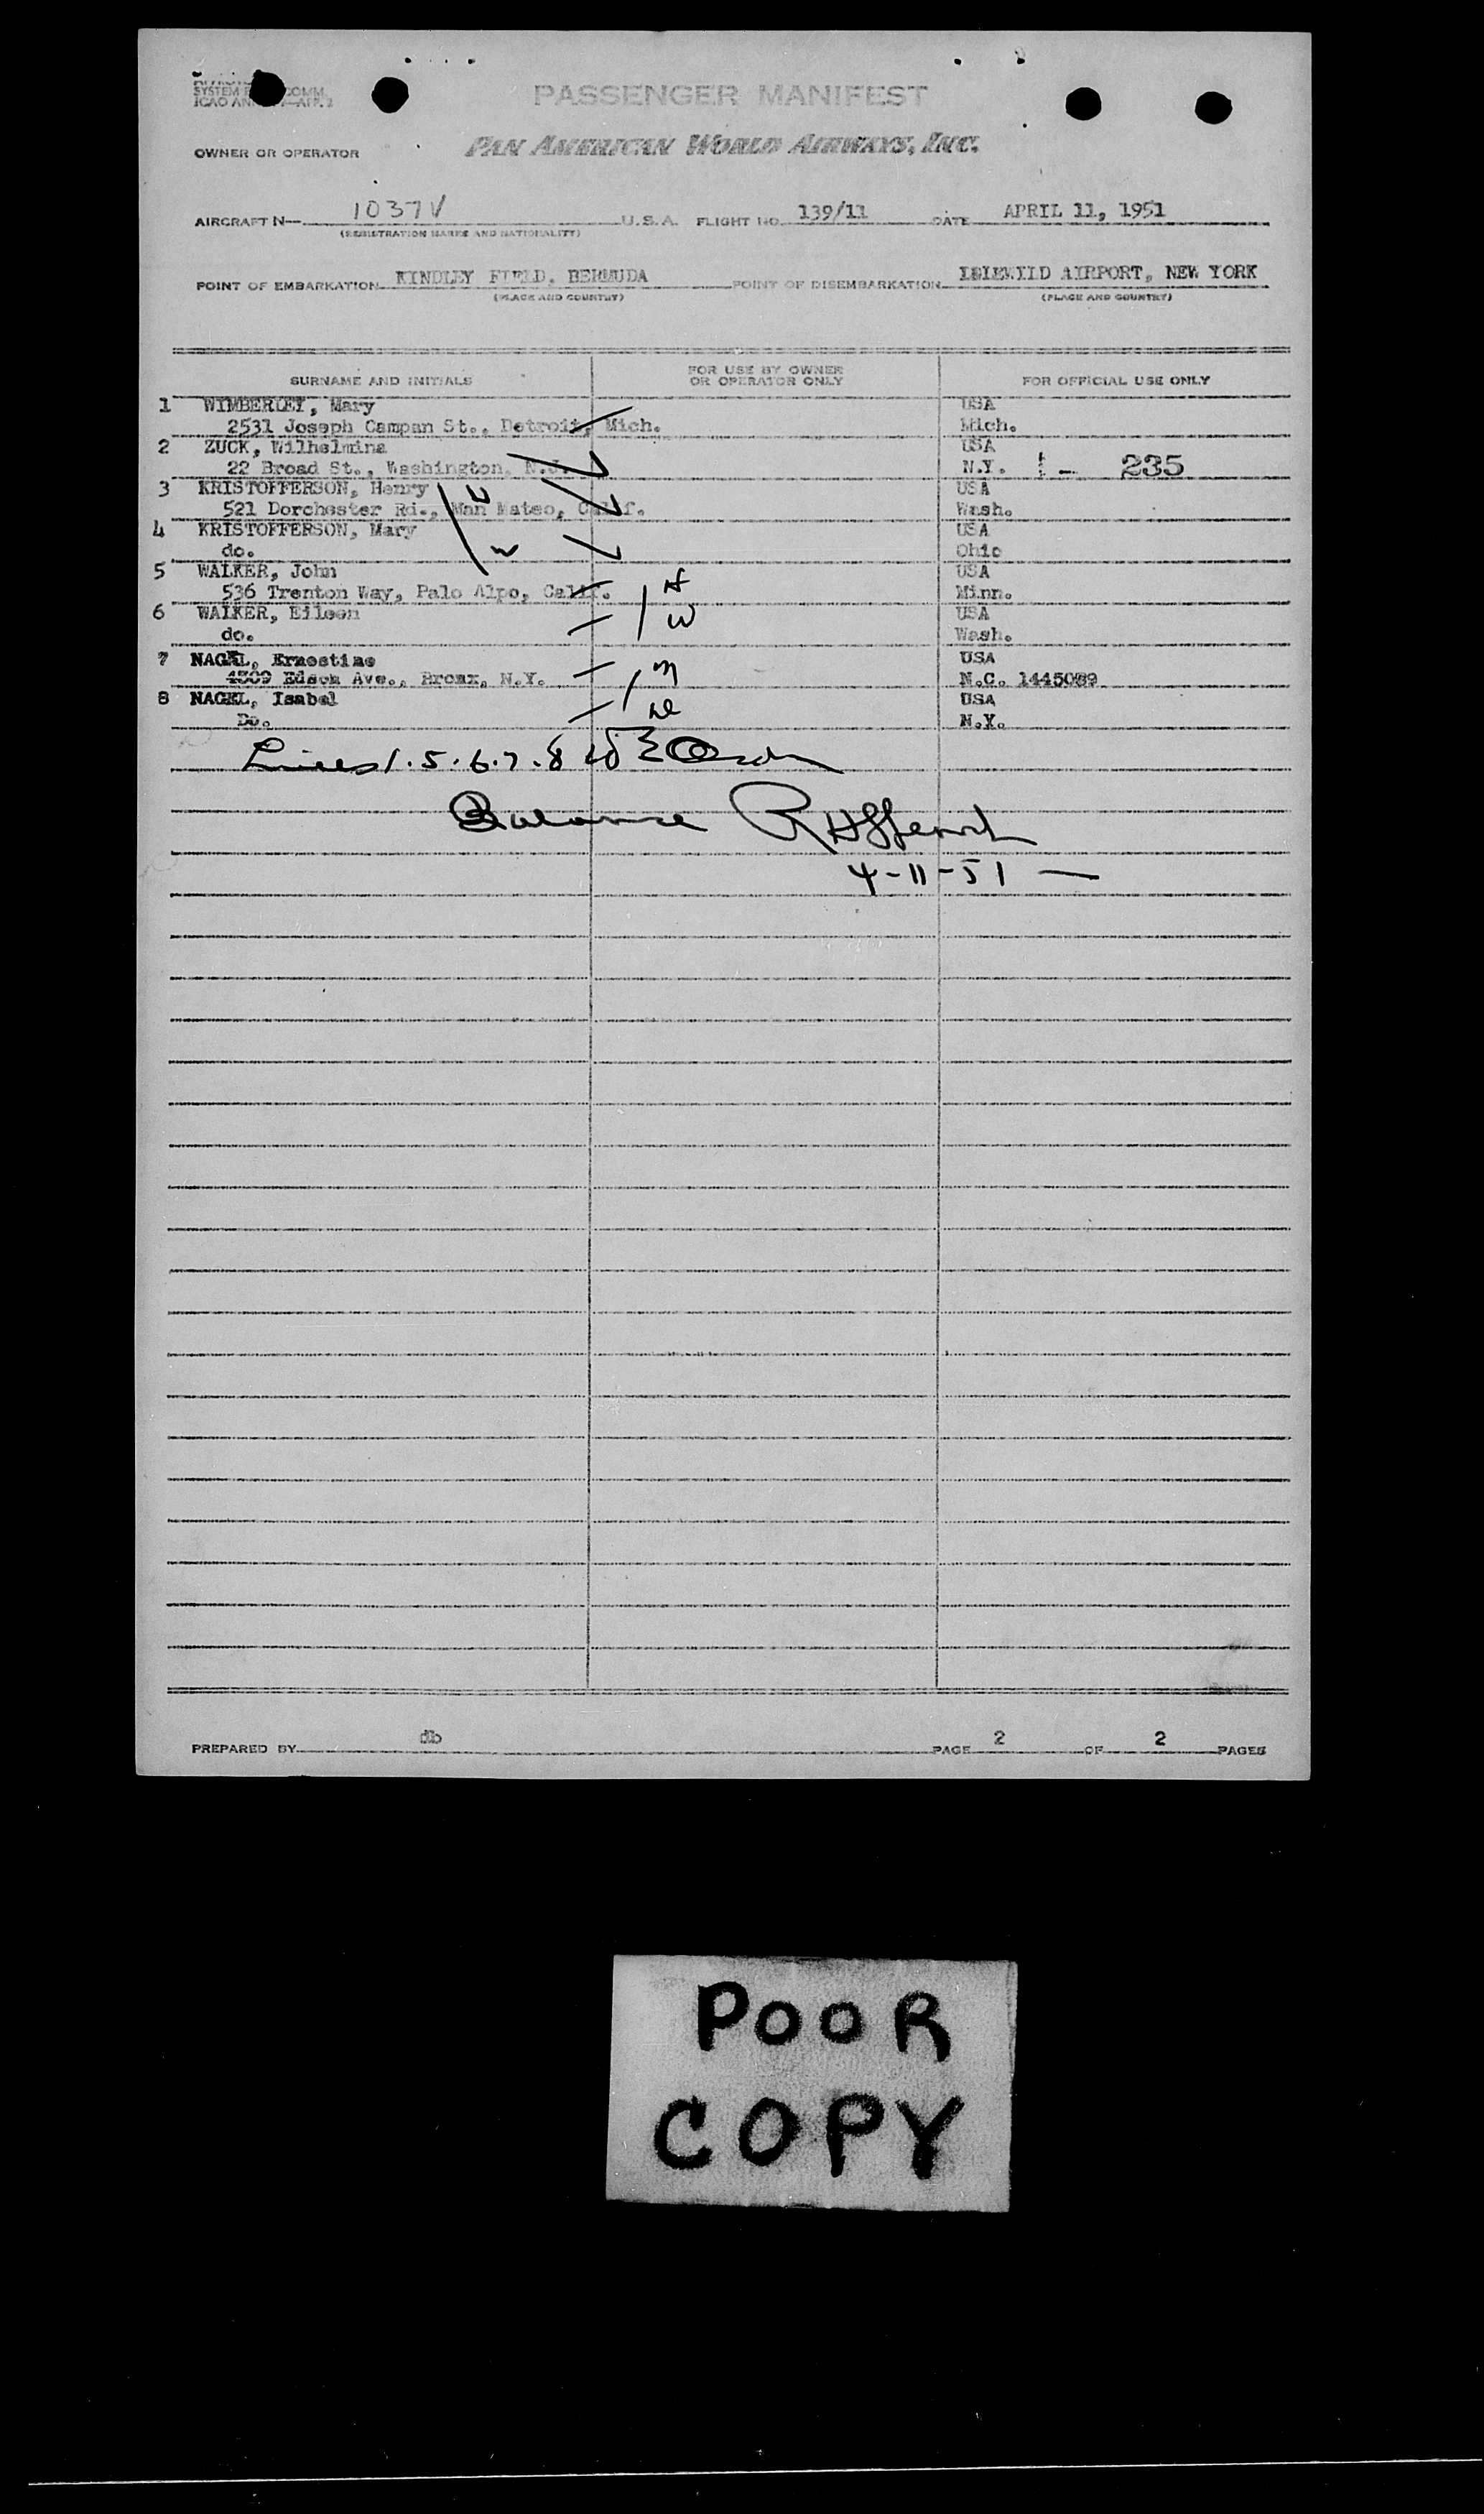 SYSTEM COMM.
ICAO
PASSENGER MANIFEST
OWNER OR OPERATOR PAN AMERICAN WORLD AIRWAYS, INC.
AIRCRAFT N— 1037V U.S.A. FLIGHT NO. 139/11 DATE APRIL 11, 1951
(REGISTRATION MARKS AND NATIONALITY)
POINT OF EMBARKATION KINDLEY FIELD, BERMUDA POINT OF DISEMBARKATION IDLEWILD AIRPORT, NEW YORK
(PLACE AND COUNTRY) (PLACE AND COUNTRY)
SURNAME AND INITIALS FOR USE BY OWNER OR OPERATOR ONLY FOR OFFICIAL USE ONLY
1 WIMBERLEY, Mary USA
2531 Joseph Campan St., Detroit, Mich. Mich.
2 ZUCK, Wilhelmina USA
22 Broad St., Washington, N.J. N.Y. 1 - 235
3 KRISTOFFERSON, Henry USA
521 Dorchester Rd., Wan Mateo, Calif. Wash.
4 KRISTOFFERSON, Mary USA
do. W Ohio
5 WALKER, John USA
536 Trenton Way, Palo Alpo, Calif. H Minn.
6 WALKER, Eileen W USA
do. Wash.
7 NAGEL, Ernestine M USA
4309 Edson Ave., Bronx, N.Y. N.C. 1445089
8 NAGEL, Isabel USA
Do. N.Y.
Lines 1.5.6.7.8
Balance
4-11-51 —
PREPARED BY db PAGE 2 OF 2 PAGES
POOR
COPY